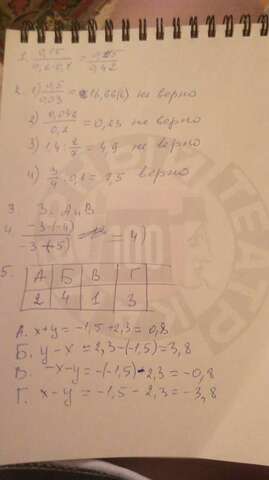 1. 0,15 / 0,6·0,7 = 0,15 / 0,42
2. 1) 0,5 / 0,03 = 16,66(6) не верно
2) 0,046 / 0,2 = 0,23 не верно
3) 1,4 : 2/7 = 4,9 не верно
4) 3/4 : 0,1 = 7,5 верно
3. 3. А и В
4. -3·(-4) / -3+(-5) = = 4)
5. А Б В Г
2 4 1 3
А. x+y = -1,5+2,3 = 0,8
Б. y-x = 2,3-(-1,5) = 3,8
В. -x-y = -(-1,5)-2,3 = -0,8
Г. x-y = -1,5-2,3 = -3,8